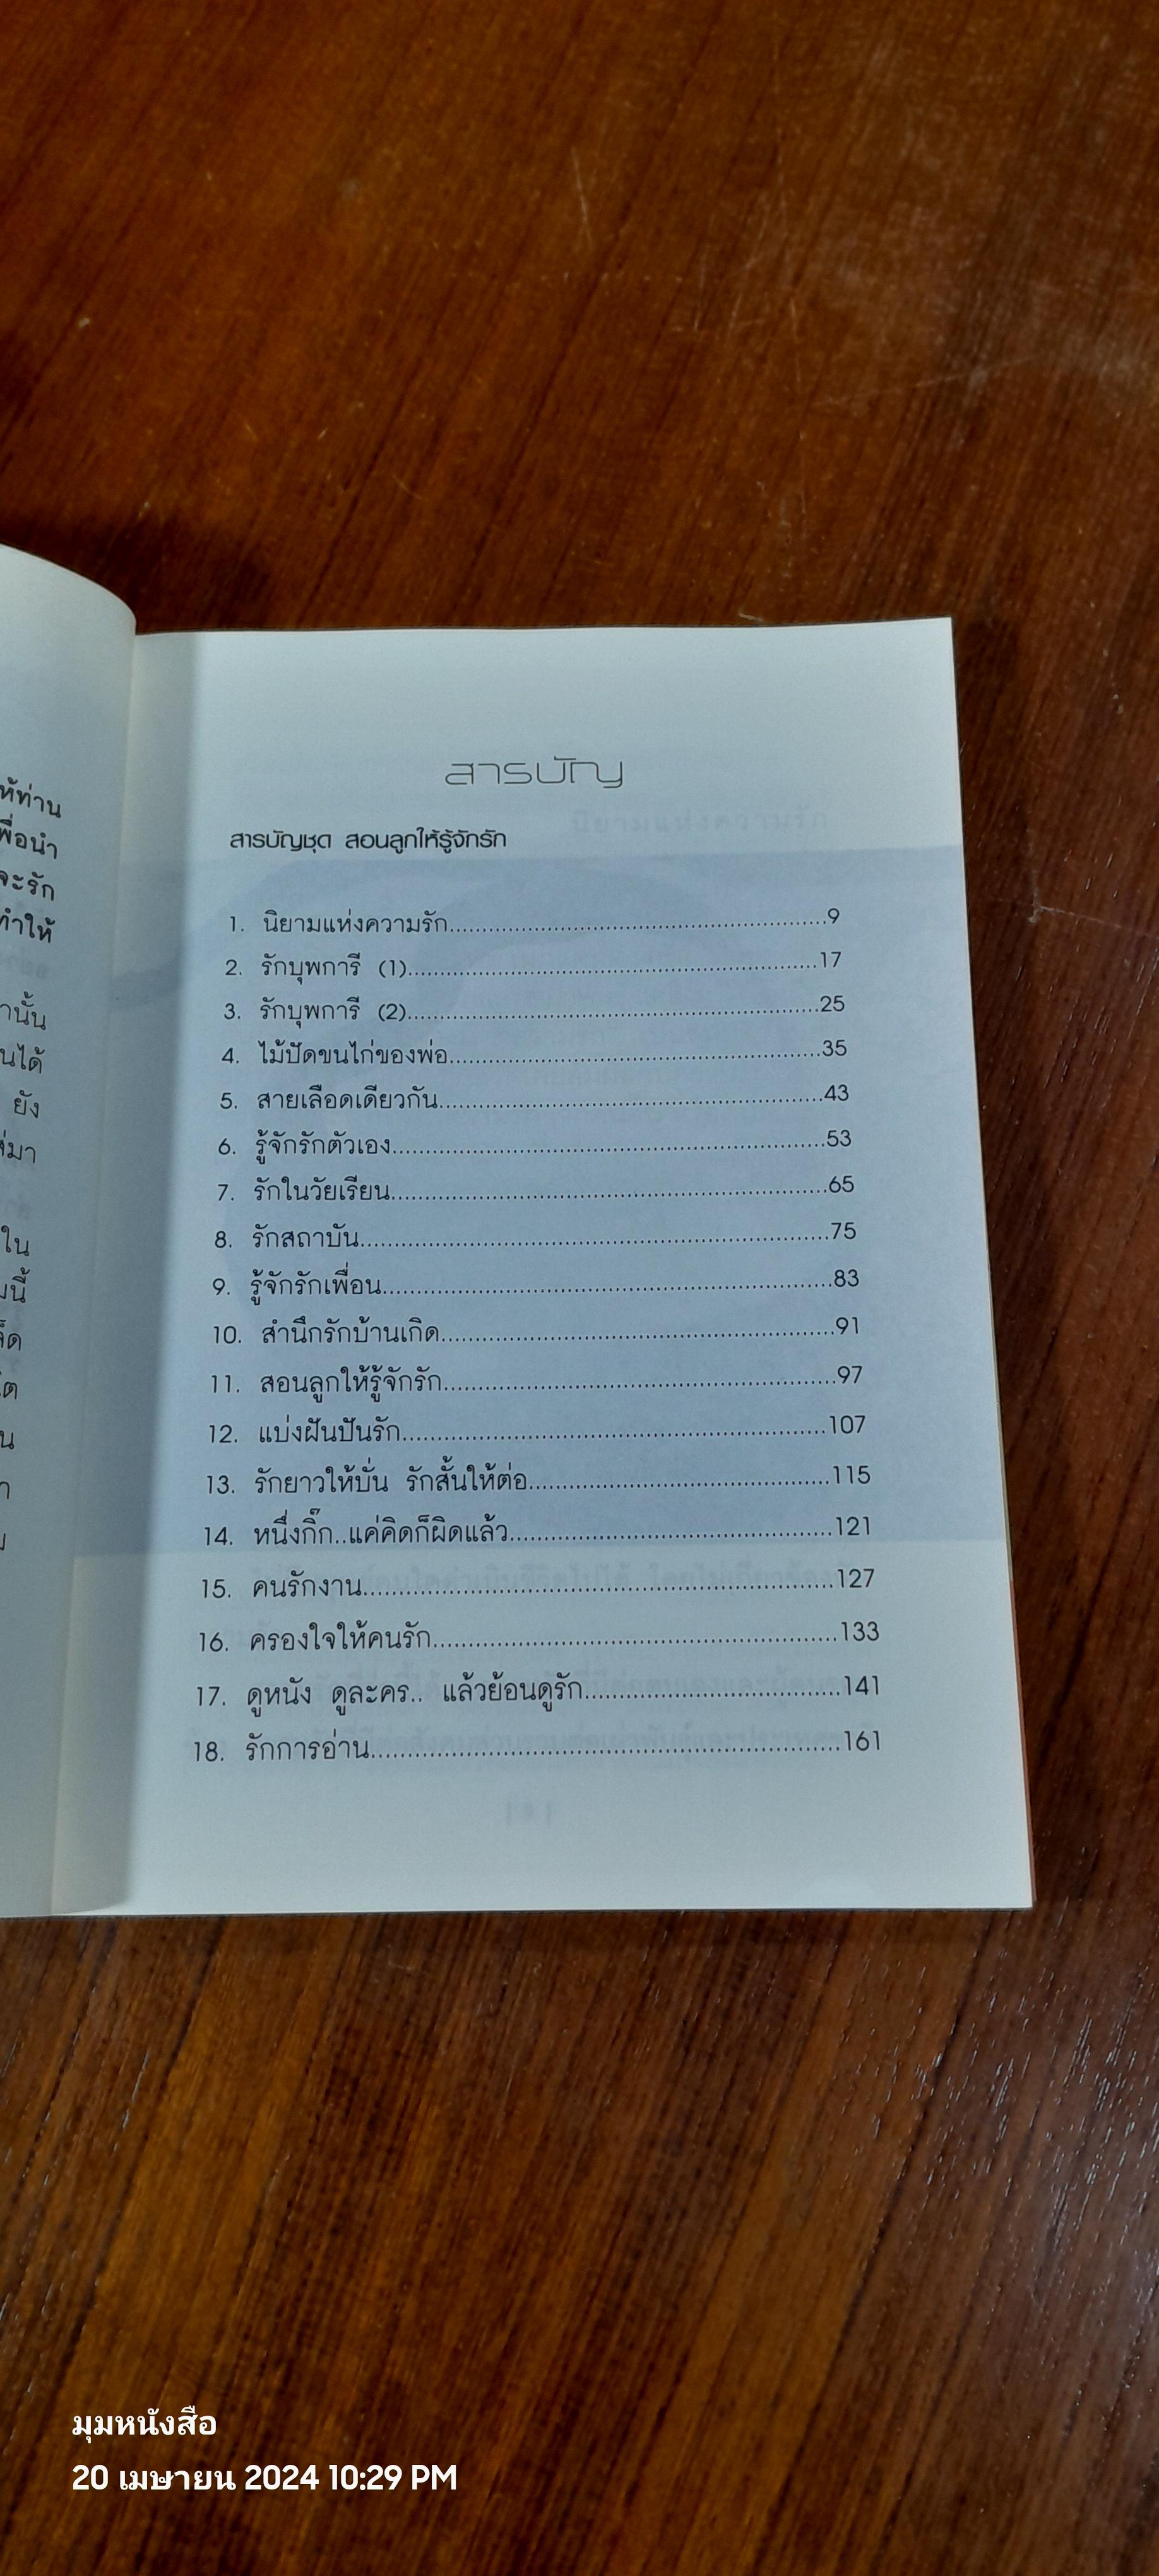 ห้ท่าน
พื่อนำ
จะรัก
ทำให้
านั้น
นได้
ยัง
ใน
สารบัญ
สารบัญชุด สอนลูกให้รู้จักรัก
1. นิยามแห่งความรัก....................................................9
2. รักบุพการี (1)..........................................................17
3. รักบุพการี (2)..........................................................25
4. ไม้ปัดขนไก่ของพ่อ....................................................35
5. สายเลือดเดียวกัน......................................................43
6. รู้จักรักตัวเอง.............................................................53
7. รักในวัยเรียน.............................................................65
8. รักสถาบัน.................................................................75
9. รู้จักรักเพื่อน..............................................................83
10. สำนึกรักบ้านเกิด......................................................91
11. สอนลูกให้รู้จักรัก......................................................97
12. แบ่งฝันปันรัก...........................................................107
13. รักยาวให้บั่น รักสั้นให้ต่อ.........................................115
14. หนึ่งกิ๊ก..แค่คิดก็ผิดแล้ว............................................121
15. คนรักงาน................................................................127
16. ครองใจให้คนรัก.......................................................133
17. ดูหนัง ดูละคร.. แล้วย้อนดูรัก...................................141
18. รักการอ่าน................................................................161
มุมหนังสือ
20 เมษายน 2024 10:29 PM